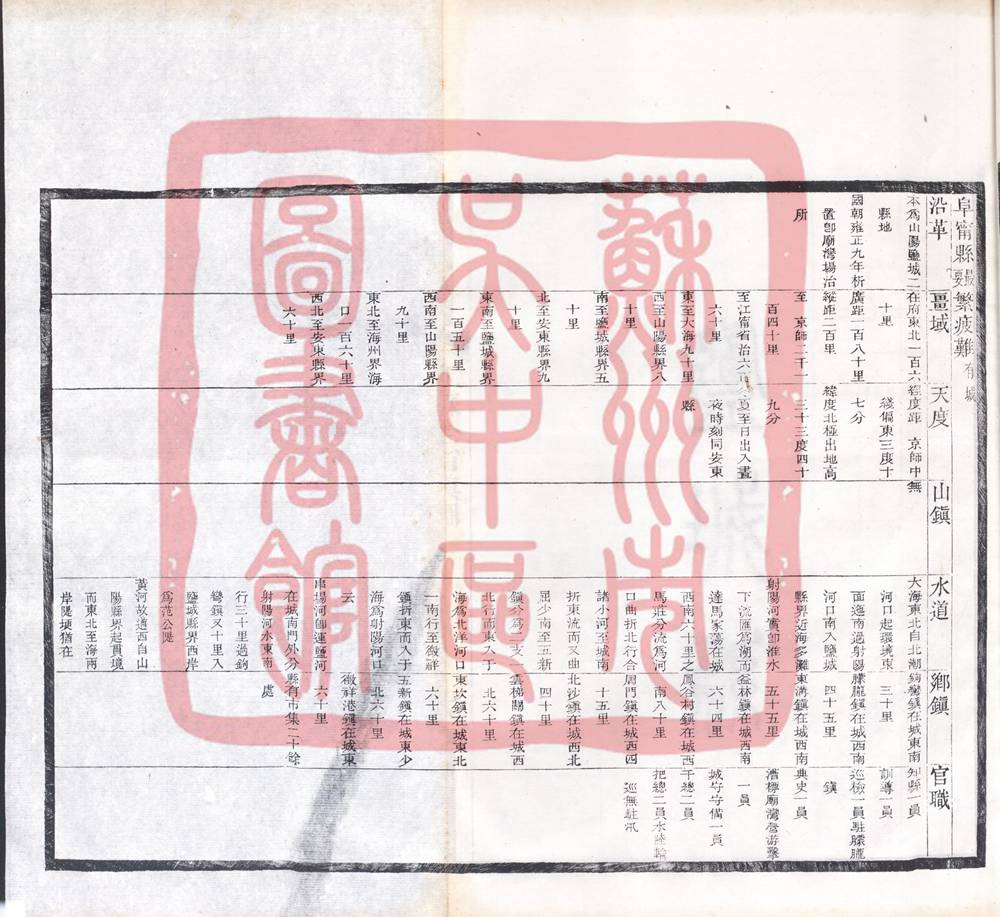 阜甯縣 最要 繁疲難 有城
沿革
本為山陽鹽城二
縣地
國朝雍正九年析
置即廟灣場治
所
疆域
在府東北一百六
十里
廣距一百八十里
縱距二百里
至 京師二千一
百四十里
至江甯省治六百
六十里
東至大海九十里
西至山陽縣界八
十里
南至鹽城縣界五
十里
北至安東縣界九
十里
東南至鹽城縣界
一百五十里
西南至山陽縣界
九十里
東北至海州界海
口一百六十里
西北至安東縣界
六十里
天度
經度距 京師中
綫偏東三度十
七分
緯度北極出地高
三十三度四十
九分
夏至日出入晝
夜時刻同安東
縣
山鎮
無
水道
大海東北自北潮
河口起環境東
面迤南過射陽
河口南入鹽城
縣界近海多灘
射陽河實即淮水
下流匯為湖而
達馬家蕩在城
西南六十里之
馬莊分流為河
口曲折北行合
諸小河至城南
折東流而又曲
屈少南至五新
鎮分為二支一
北行而東入于
海為北洋河口
一南行至徵祥
鎮折東而入于
海為射陽河口
云
串場河即運鹽河
在城南門外分
射陽河水東南
行三十里過鉤
彎鎮又十里入
鹽城縣界西岸
為范公隄
黃河故道西自山
陽縣界起貫境
而東北至海南
岸隄埂猶在
鄉鎮
鉤彎鎮在城東南
三十里
朦朧鎮在城西南
四十五里
東溝鎮在城西南
五十五里
益林鎮在城西南
六十四里
鳳谷村鎮在城西
南八十里
周門鎮在城西四
十五里
北沙鎮在城西北
四十里
雲梯關鎮在城西
北六十里
東坎鎮在城東北
六十里
五新鎮在城東少
北六十里
徵祥港鎮在城東
六十里
縣有市集二十餘
處
官職
知縣一員
訓導一員
巡檢一員駐朦朧
鎮
典史一員
漕標廟灣營游擊
一員
城守守備一員
千總二員
把總二員水陸輪
巡無駐汛
蘇州市
吳中區
圖書館